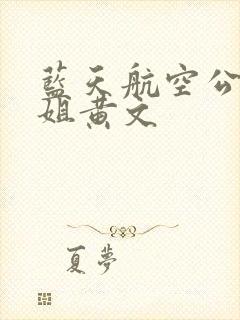 藍天航空公
姐黄文
夏夢